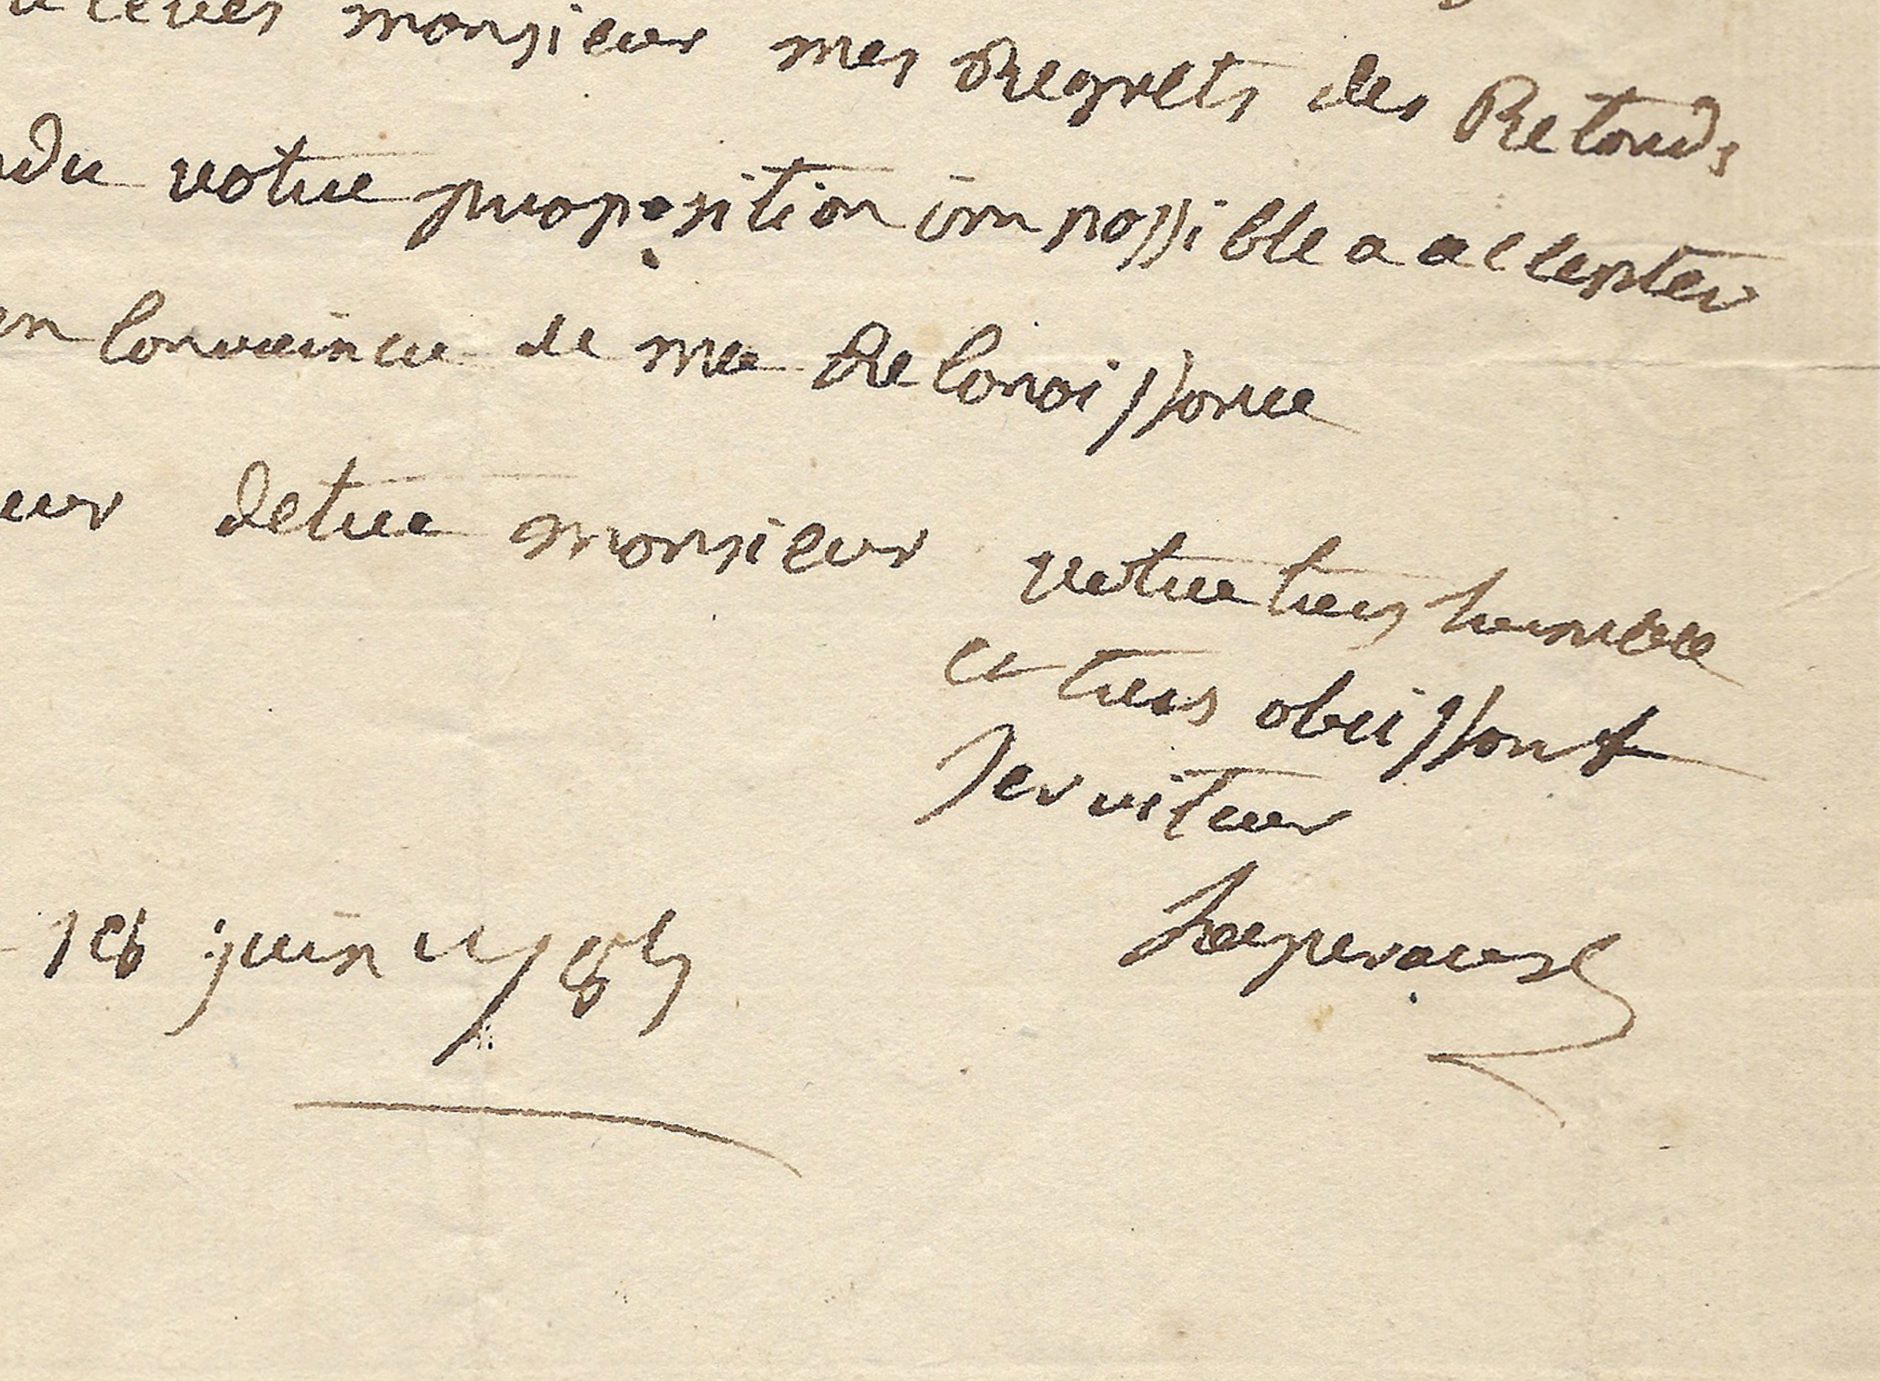 monsieur mes Regrets des Retards
du votre proposition impossible a accepter
en convaincu de ma Reconoissance
eur detre monsieur votre tres humble
et tres obeissant
serviteur
juin 1785 Laperouse